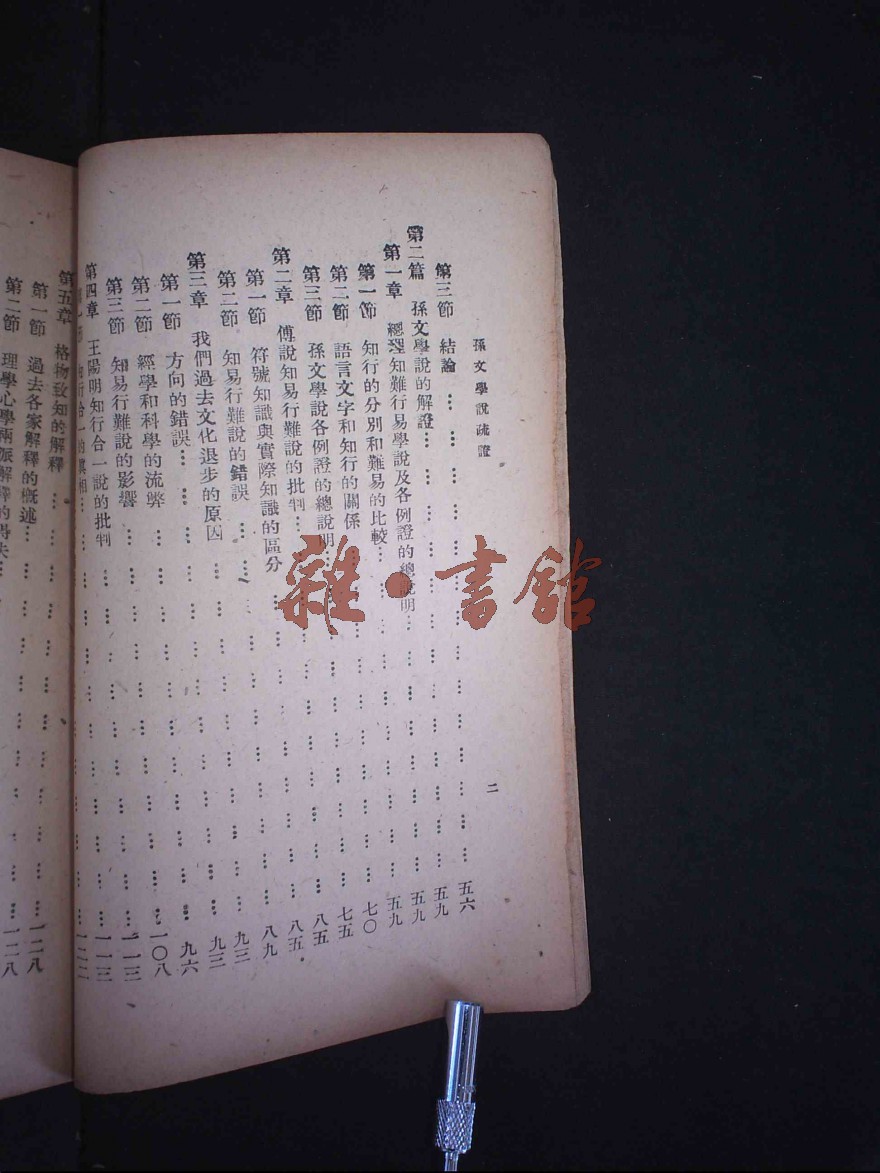 孫文學說疏證 二
第三節 結論 … 五六
第二篇 孫文學說的解證 … 五九
第一章 總理知難行易學說及各例證的總說明 … 五九
第一節 知行的分別和難易的比較 … 五九
第二節 語言文字和知行的關係 … 七〇
第三節 孫文學說各例證的總說明 … 七五
第二章 傅說知易行難說的批判 … 八五
第一節 符號知識與實際知識的區分 … 八五
第二節 知易行難說的錯誤 … 八九
第三章 我們過去文化退步的原因 … 九三
第一節 方向的錯誤 … 九三
第二節 經學和科學的流弊 … 九六
第三節 知易行難說的影響 … 一〇八
第四章 王陽明知行合一說的批判 … 一一三
第一節 知行合一的真相 … 一一三
第五章 格物致知的解釋 … 一二二
第一節 過去各家解釋的概述 … 一二八
第二節 理學心學兩派解釋的得失 … 一二八
雜·書館